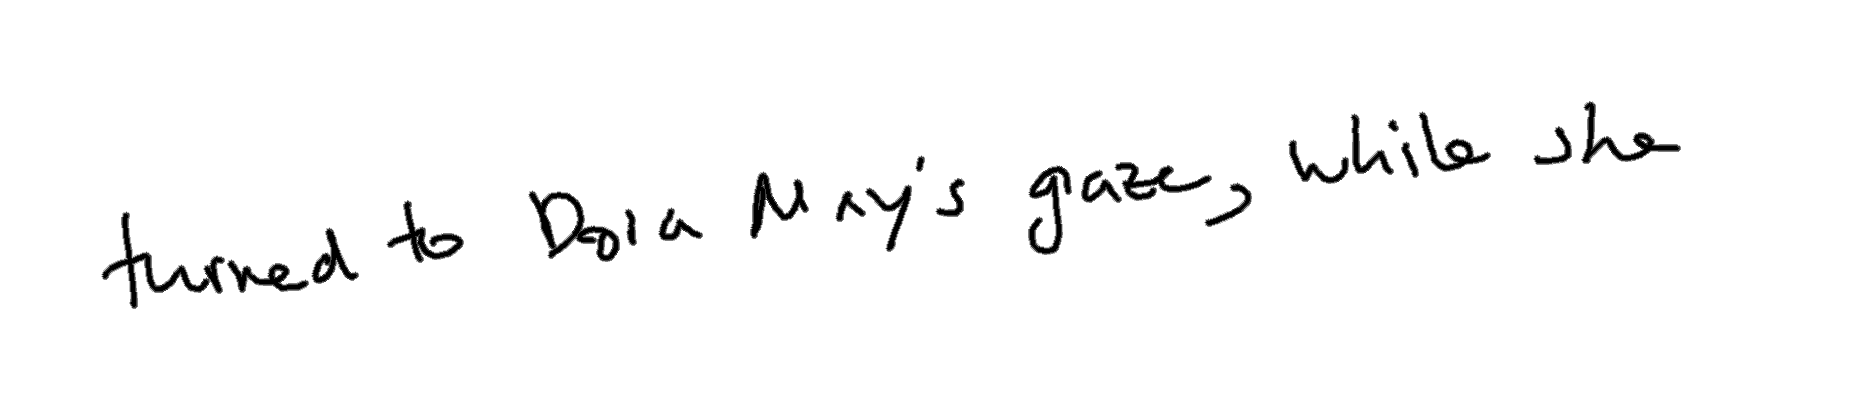 turned to Dora May's gaze, while she